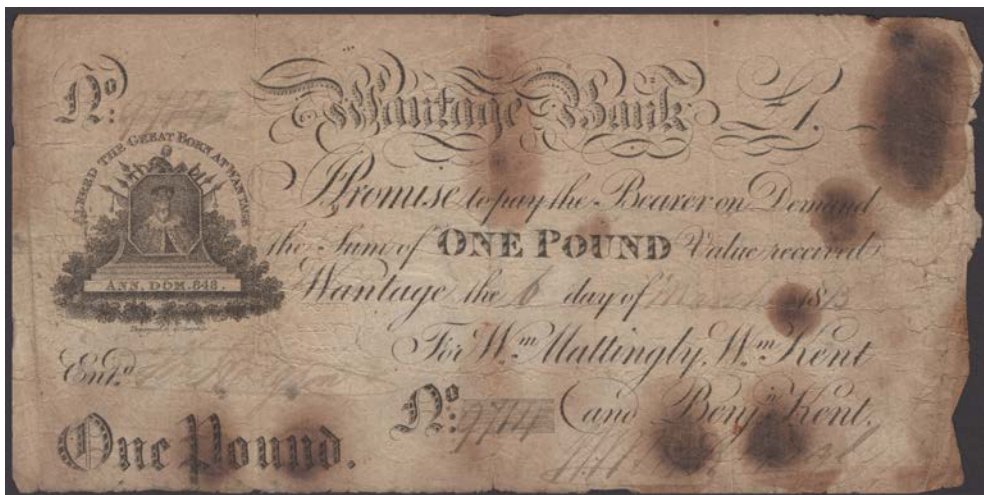 Nº:
Wantage Bank £1.
ALFRED THE GREAT BORN AT WANTAGE
ANN. DOM. 848.
I Promise to pay the Bearer on Demand
the Sum of ONE POUND Value received
Wantage the 6 day of March 1815
For Wm Mattingly, Wm Kent
Entd
Nº: 9744 and Benjn Kent.
One Pound.